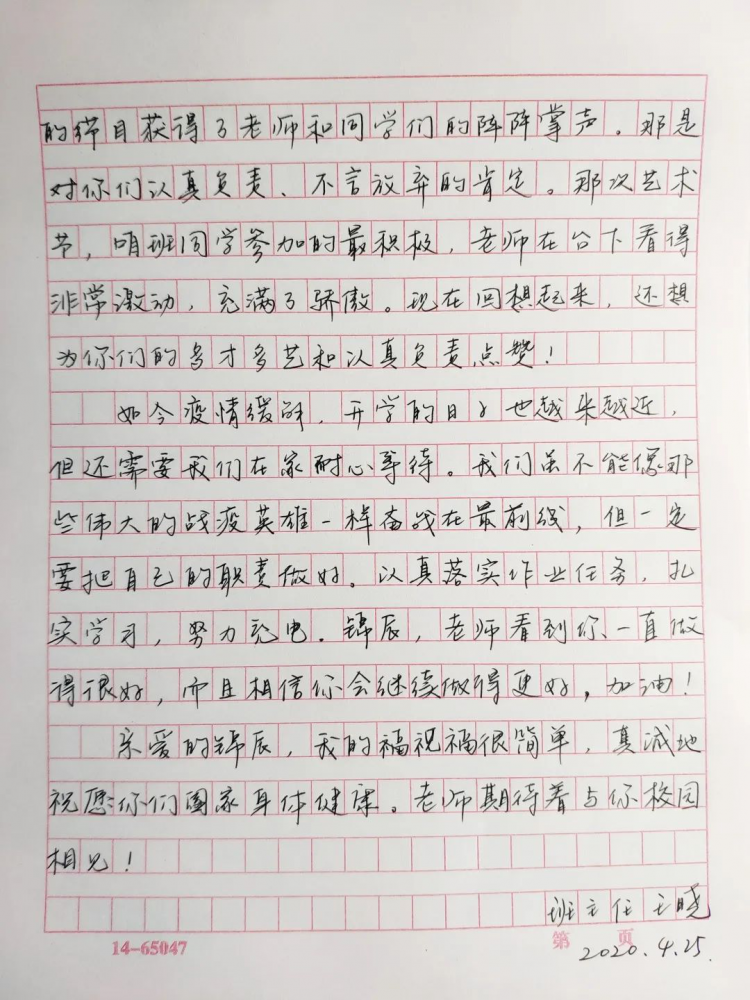 的节目获得了老师和同学们的阵阵掌声。那是
对你们认真负责、不言放弃的肯定。那次艺术
节，咱班同学参加的最积极，老师在台下看得
非常激动，充满了骄傲。现在回想起来，还想
为你们的多才多艺和认真负责点赞！
如今疫情缓解，开学的日子也越来越近，
但还需要我们在家耐心等待。我们虽不能像那
些伟大的战疫英雄一样奋战在最前线，但一定
要把自己的职责做好。认真落实作业任务，扎
实学习，努力充电。锦辰，老师看到你一直做
得很好，而且相信你会继续做得更好，加油！
亲爱的锦辰，我的祝福很简单，真诚地
祝愿你们阖家身体健康。老师期待着与你校园
相见！
班主任王晓
14-65047 第 页
2020.4.25.